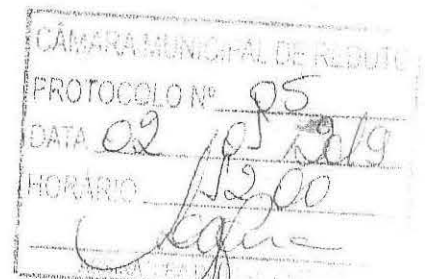 CÂMARA MUNICIPAL DE REDUTO
PROTOCOLO Nº 05
DATA 02 2019
HORÁRIO 12 00